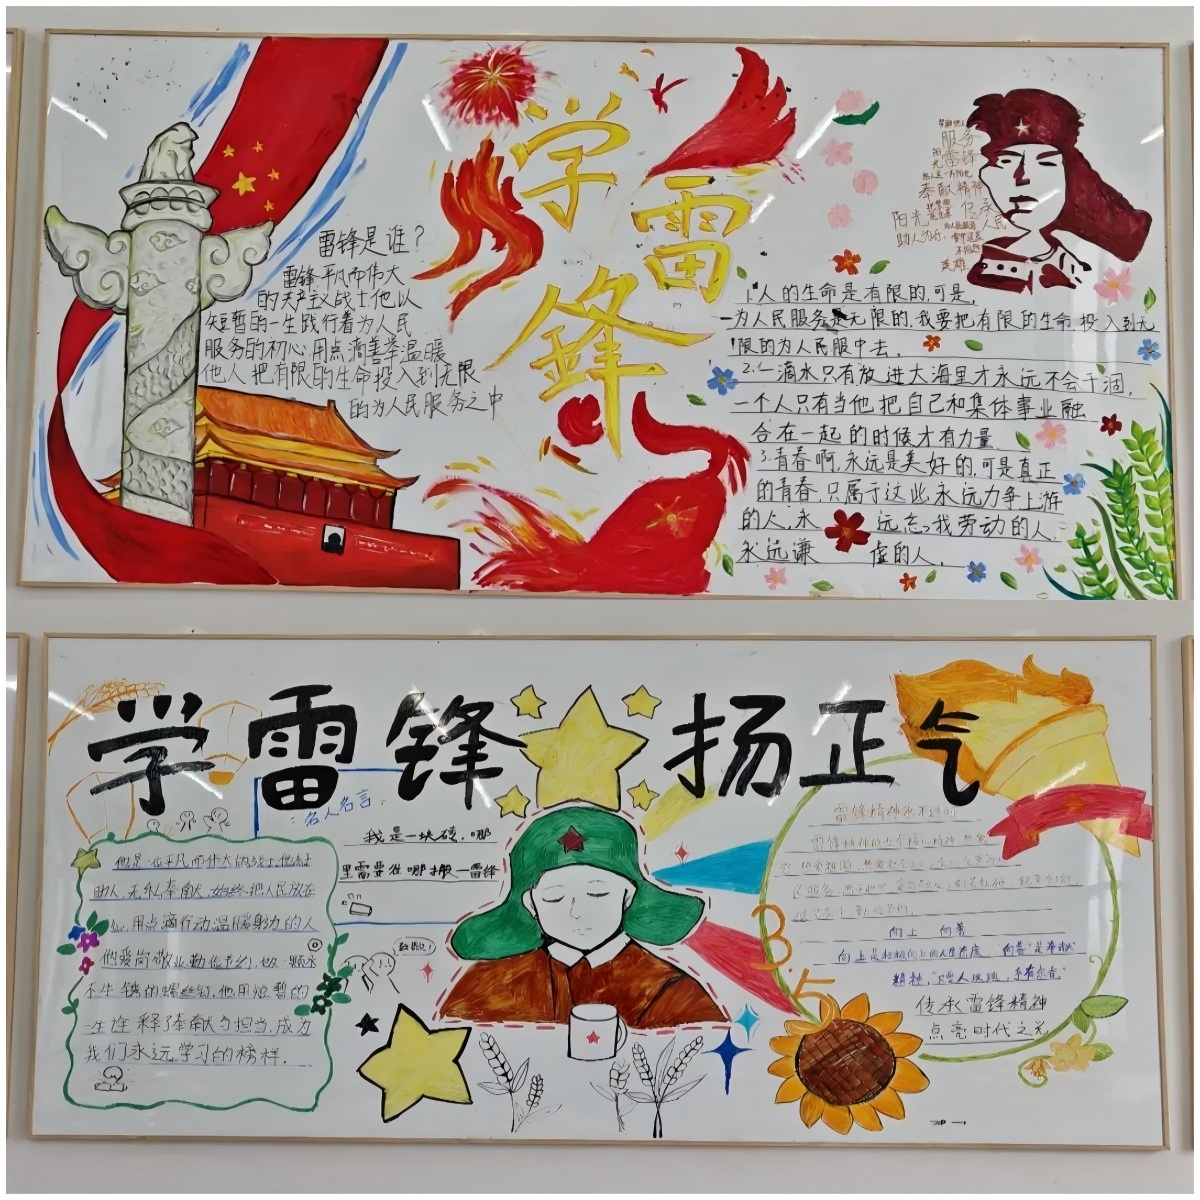 学
雷
锋
雷锋是谁？
雷锋,平凡而伟大
的共产主义战士他以
短暂的一生践行着为人民
服务的初心,用点滴善举温暖
他人把有限的生命投入到无限
的为人民服务之中
服务
雷锋
奉献精神
阳光
传承
人民
助人为
英雄
1.人的生命是有限的,可是,
为人民服务是无限的,我要把有限的生命,投入到无
限的为人民服中去.
2.一滴水只有放进大海里才永远不会干涸,
一个人只有当他把自己和集体事业融
合在一起的时候才有力量
3.青春啊,永远是美好的,可是真正
的青春,只属于这些永远力争上游
的人,永远忘我劳动的人,
永远谦虚的人.
学雷锋 扬正气
名人名言:
我是一块砖,哪
里需要往哪搬—雷锋
他是一位平凡而伟大的战士,他
助人,无私奉献,始终把人民放在
心,用点滴行动温暖身边的人
他爱岗敬业,勤俭节约,做一颗永
不生锈的螺丝钉,他用短暂的
一生诠释了奉献与担当,成为
我们永远学习的榜样.
3.5
雷锋精神永不过时
雷锋精神的
向上 向善
向上是积极向上的人生态度
传承雷锋精神
点亮时代之光